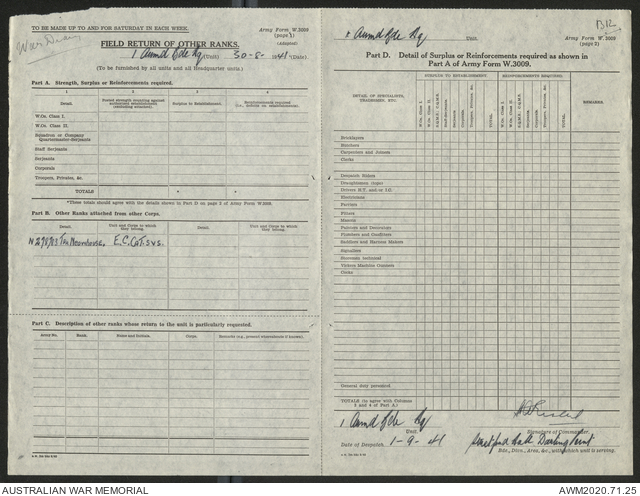 TO BE MADE UP TO AND FOR SATURDAY IN EACH WEEK.
Army Form W.3009
(page 1)
War Diary
FIELD RETURN OF OTHER RANKS.
1 Armd Bde Hq (Unit) 30-8-1941 (Date)
(To be furnished by all units and all Headquarter units.)
Part A. Strength, Surplus or Reinforcements required.
1 2 3 4
Detail.
Surplus to Establishment.
W.Os. Class I.
W.Os. Class II.
Squadron or Company
Quartermaster-Serjeants
Staff Serjeants
Serjeants
Corporals
Troopers, Privates, &c.
TOTALS * *
*These totals should agree with the details shown in Part D on page 2 of Army Form W.3009.
Part B. Other Ranks attached from other Corps.
Detail. Unit and Corps to which they belong. Detail. Unit and Corps to which they belong.
E.C. Cat. Svs.
Part C. Description of other ranks whose return to the unit is particularly requested.
Army No. Rank. Name and Initials. Corps. Remarks (e.g., present whereabouts if known).
1 Armd Bde Hq Unit.
Army Form W.3009
(page 2)
Part D. Detail of Surplus or Reinforcements required as shown in
Part A of Army Form W.3009.
DETAIL OF SPECIALISTS,
TRADESMEN, ETC.
SURPLUS TO ESTABLISHMENT.
REINFORCEMENTS REQUIRED.
W.Os. Class I.
W.Os. Class II.
Staff Serjeants
Serjeants
Corporals
Troopers, Privates, &c.
TOTAL
W.Os. Class I.
W.Os. Class II.
Serjeants
Corporals
TOTAL
REMARKS
Bricklayers
Butchers
Carpenters and Joiners
Clerks
Despatch Riders
Draughtsmen (topo)
Drivers H.T. and/or I.C.
Electricians
Farriers
Fitters
Masons
Painters and Decorators
Plumbers and Gasfitters
Saddlers and Harness Makers
Signallers
Storemen technical
Vickers Machine Gunners
Cooks
General duty personnel
TOTALS (to agree with Columns
3 and 4 of Part A.)
1 Armd Bde Hq
Unit.
Signature of Commander.
Date of Despatch 1-9-41
Darling Point
Bde., Divn., Area, &c., with which unit is serving.
AUSTRALIAN WAR MEMORIAL
AWM2020.71.25